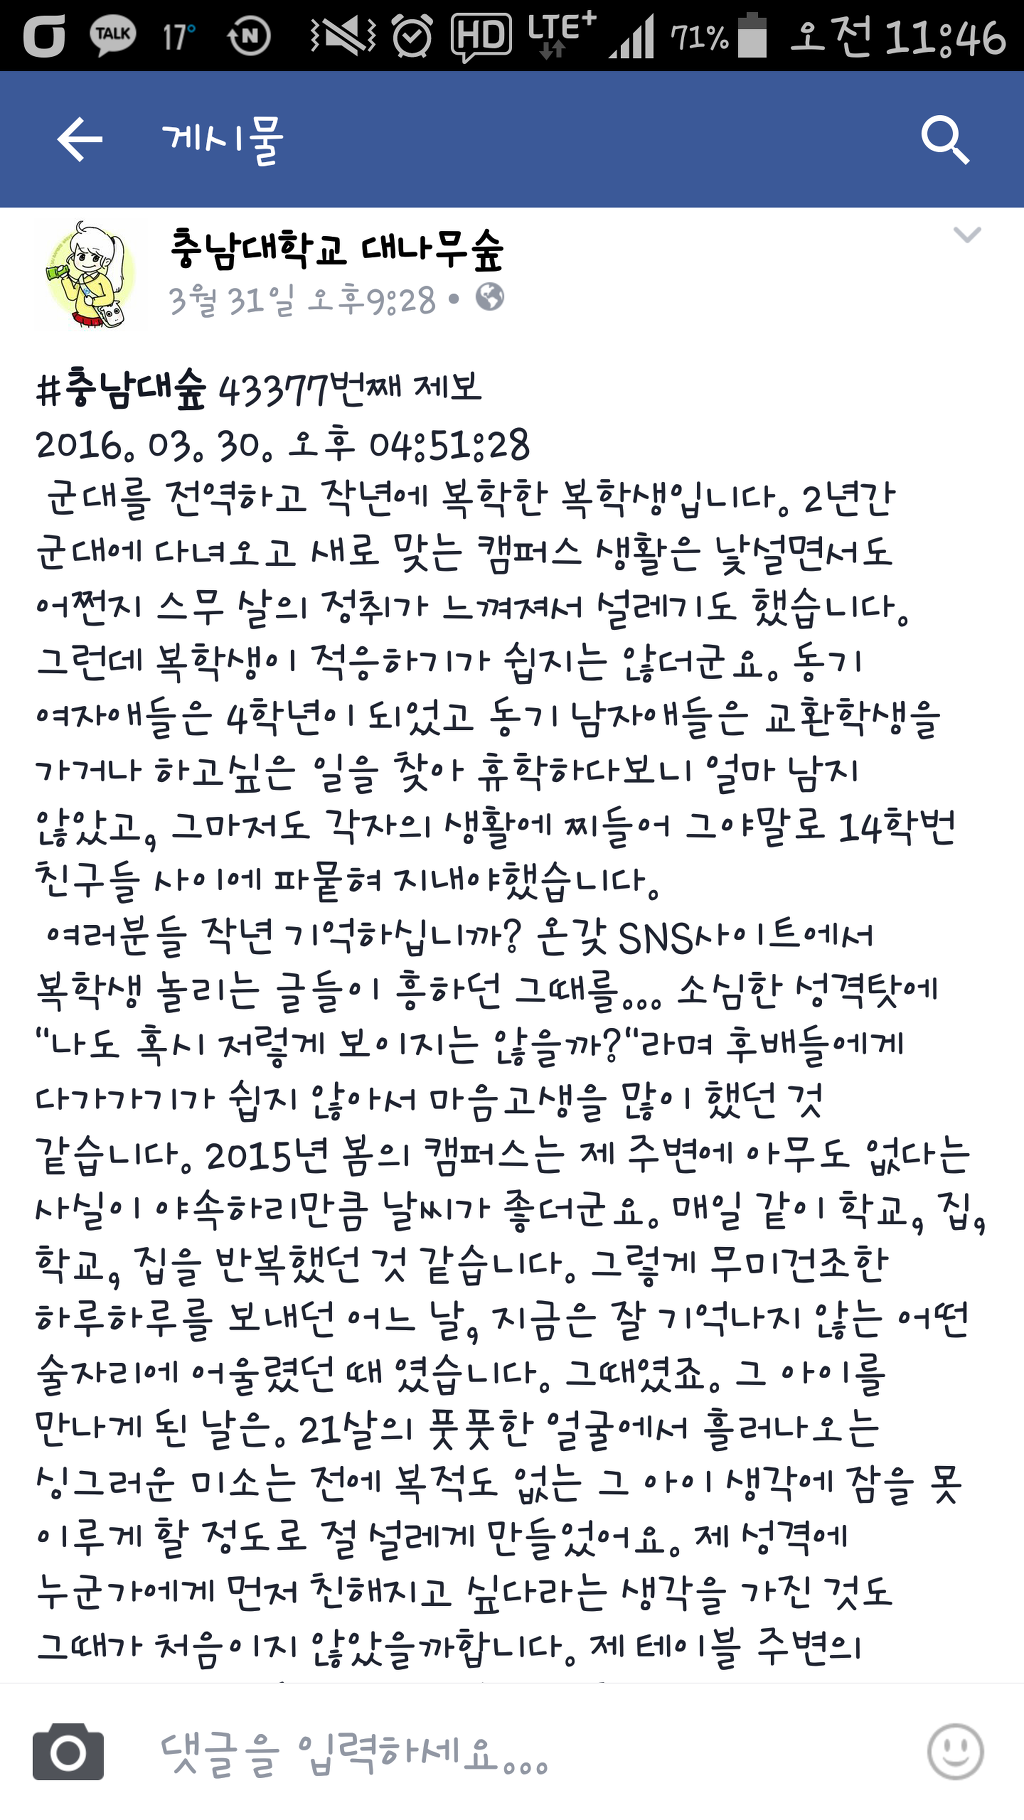 TALK 17° N HD LTE+ 71% 오전 11:46
게시물
충남대학교 대나무숲
3월 31일 오후9:28 •
#충남대숲 43377번째 제보
2016. 03. 30. 오후 04:51:28
군대를 전역하고 작년에 복학한 복학생입니다. 2년간
군대에 다녀오고 새로 맞는 캠퍼스 생활은 낯설면서도
어쩐지 스무 살의 정취가 느껴져서 설레기도 했습니다.
그런데 복학생이 적응하기가 쉽지는 않더군요. 동기
여자애들은 4학년이 되었고 동기 남자애들은 교환학생을
가거나 하고싶은 일을 찾아 휴학하다보니 얼마 남지
않았고, 그마저도 각자의 생활에 찌들어 그야말로 14학번
친구들 사이에 파묻혀 지내야했습니다.
여러분들 작년 기억하십니까? 온갖 SNS사이트에서
복학생 놀리는 글들이 흥하던 그때를... 소심한 성격탓에
"나도 혹시 저렇게 보이지는 않을까?"라며 후배들에게
다가가기가 쉽지 않아서 마음고생을 많이 했던 것
같습니다. 2015년 봄의 캠퍼스는 제 주변에 아무도 없다는
사실이 야속하리만큼 날씨가 좋더군요. 매일 같이 학교, 집,
학교, 집을 반복했던 것 같습니다. 그렇게 무미건조한
하루하루를 보내던 어느 날, 지금은 잘 기억나지 않는 어떤
술자리에 어울렸던 때 였습니다. 그때였죠. 그 아이를
만나게 된 날은. 21살의 풋풋한 얼굴에서 흘러나오는
싱그러운 미소는 전에 복적도 없는 그 아이 생각에 잠을 못
이루게 할 정도로 절 설레게 만들었어요. 제 성격에
누군가에게 먼저 친해지고 싶다라는 생각을 가진 것도
그때가 처음이지 않았을까합니다. 제 테이블 주변의
댓글을 입력하세요...